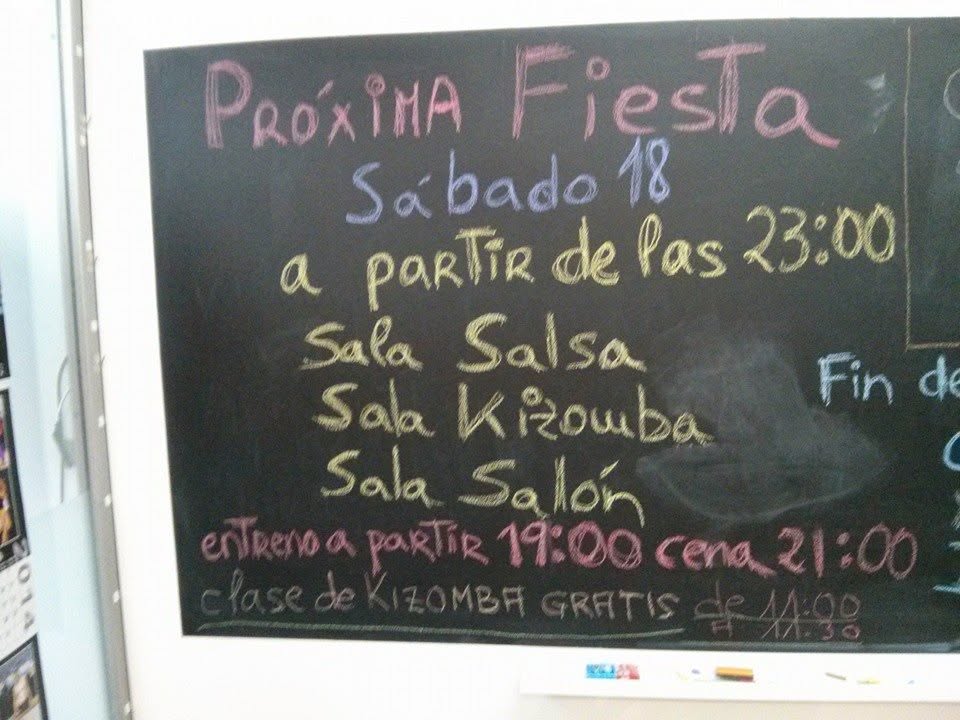 PRÓXIMA FIESTA
Sábado 18
a partir de las 23:00
Sala Salsa
Sala Kizomba
Sala Salón
entreno a partir 19:00 cena 21:00
clase de KIZOMBA GRATIS de 11:00
A 11:30
Fin de